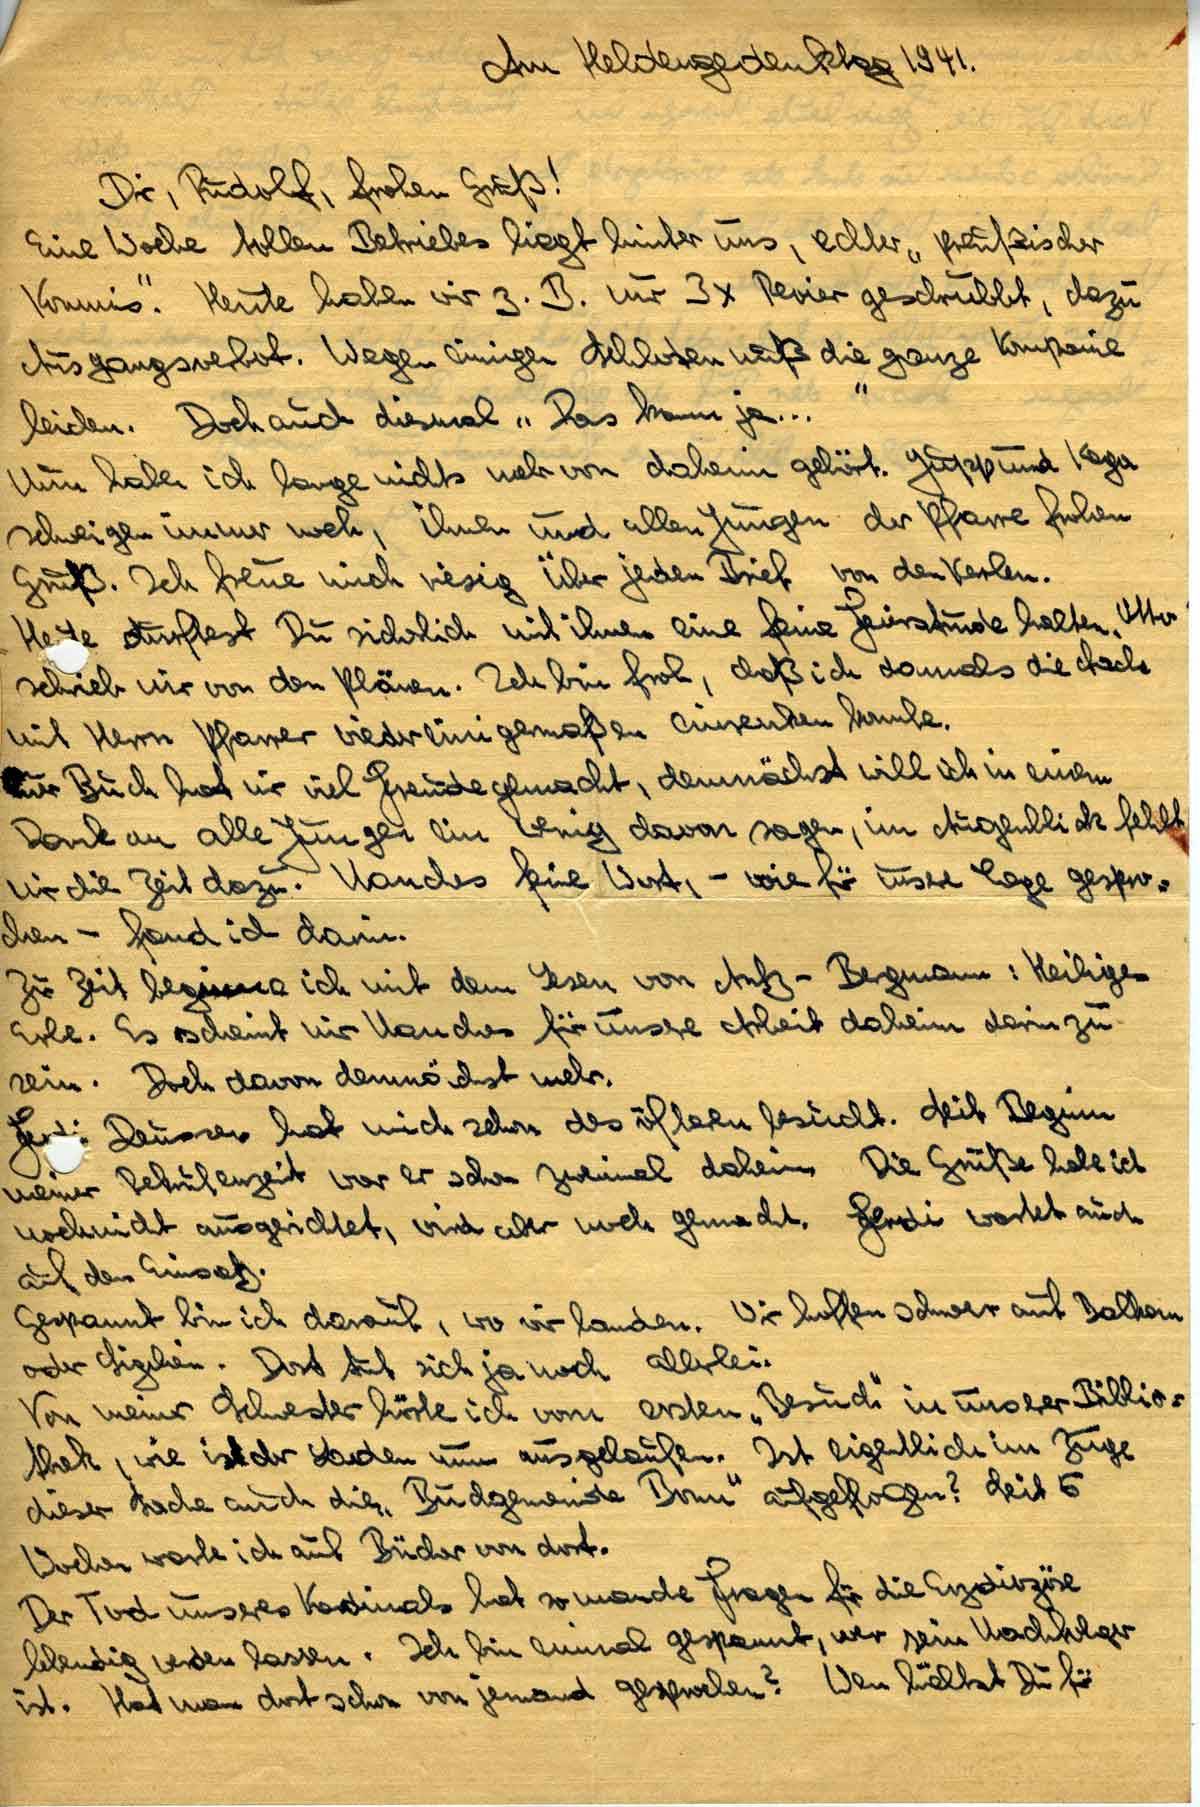 Am Heldengedenktag 1941.
Dir, Rudolf, frohen Gruß!
Eine Woche tollen Betriebes liegt hinter uns, echter „preußischer
Kommis". Heute haben wir z. B. nur 3x Revier geschrubbt, dazu
Ausgangsverbot. Wegen einigen Schloten muß die ganze Kompanie
leiden. Doch auch diesmal „Das kann ja..."
Nun habe ich lange nichts mehr von daheim gehört. Jupp und
schweigen immer noch, ihnen und allen Jungen der Pfarre frohen
Gruß. Ich freue mich riesig über jeden Brief von den Kerlen.
Heute durftest Du sicherlich mit ihnen eine feine Feierstunde halten. Otto
schrieb mir von den Plänen. Ich bin froh, daß ich damals die Sache
mit Herrn Pfarrer wieder einigermaßen einrenken konnte.
Buch hat mir viel Freude gemacht, demnächst will ich in einem
Dank an alle Jungen ein wenig davon sagen, im Augenblick fehlt
mir die Zeit dazu. Manches feine Wort, - wie für unsere Lage gespro-
chen - fand ich darin.
Zur Zeit beginne ich mit dem Lesen von Bergmann: Heiliges
Erbe. Es scheint mir Manches für unsere Arbeit daheim darin zu
sein. Doch davon demnächst mehr.
Ferdi Deussen hat mich schon des öfteren besucht. Seit Beginn
meiner Rekrutenzeit war er schon zweimal daheim. Die Grüße habe ich
noch nicht ausgerichtet, wird aber noch gemacht. Ferdi wartet auch
auf den Einsatz.
Gespannt bin ich darauf, wo wir landen. Wir hoffen schwer auf Balkan
oder Sizilien. Dort tut sich ja noch allerlei.
Von meiner Schwester hörte ich vom ersten „Besuch" in unserer Biblio-
thek, wie ist der Laden nun ausgelaufen. Ist eigentlich im Zuge
dieser Sache auch die „Buchgemeinde Bonn" aufgeflogen? Seit 6
Wochen warte ich auf Bücher von dort.
Der Tod unseres Kardinals hat so manche Fragen für die Erzdiözöse
lebendig werden lassen. Ich bin einmal gespannt, wer sein Nachfolger
ist. Hat man dort schon von jemand gesprochen? Wen hältst Du für